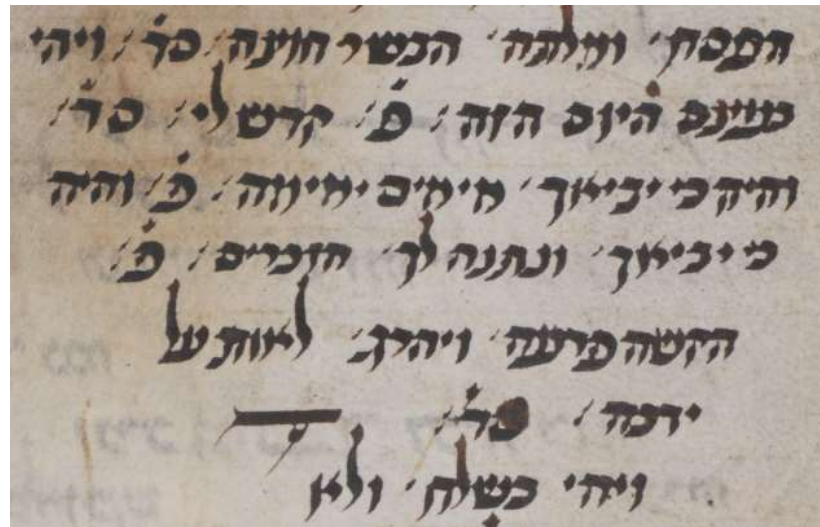 הפסח׳ ומלתה׳ הבשר חוצה׳ סד׳ ויהי
בעצם היום הזה׳ פ׳ קדש לי׳ סד׳
והיה כי יביאך׳ מימים ימימה׳ פ׳ והיה
כי יביאך׳ ונתנה לך׳ הזכרים׳ פ׳
הקשה פרעה׳ ויהרג׳ לאות על
ידכה׳ סד׳
ויהי בשלח׳ ולא